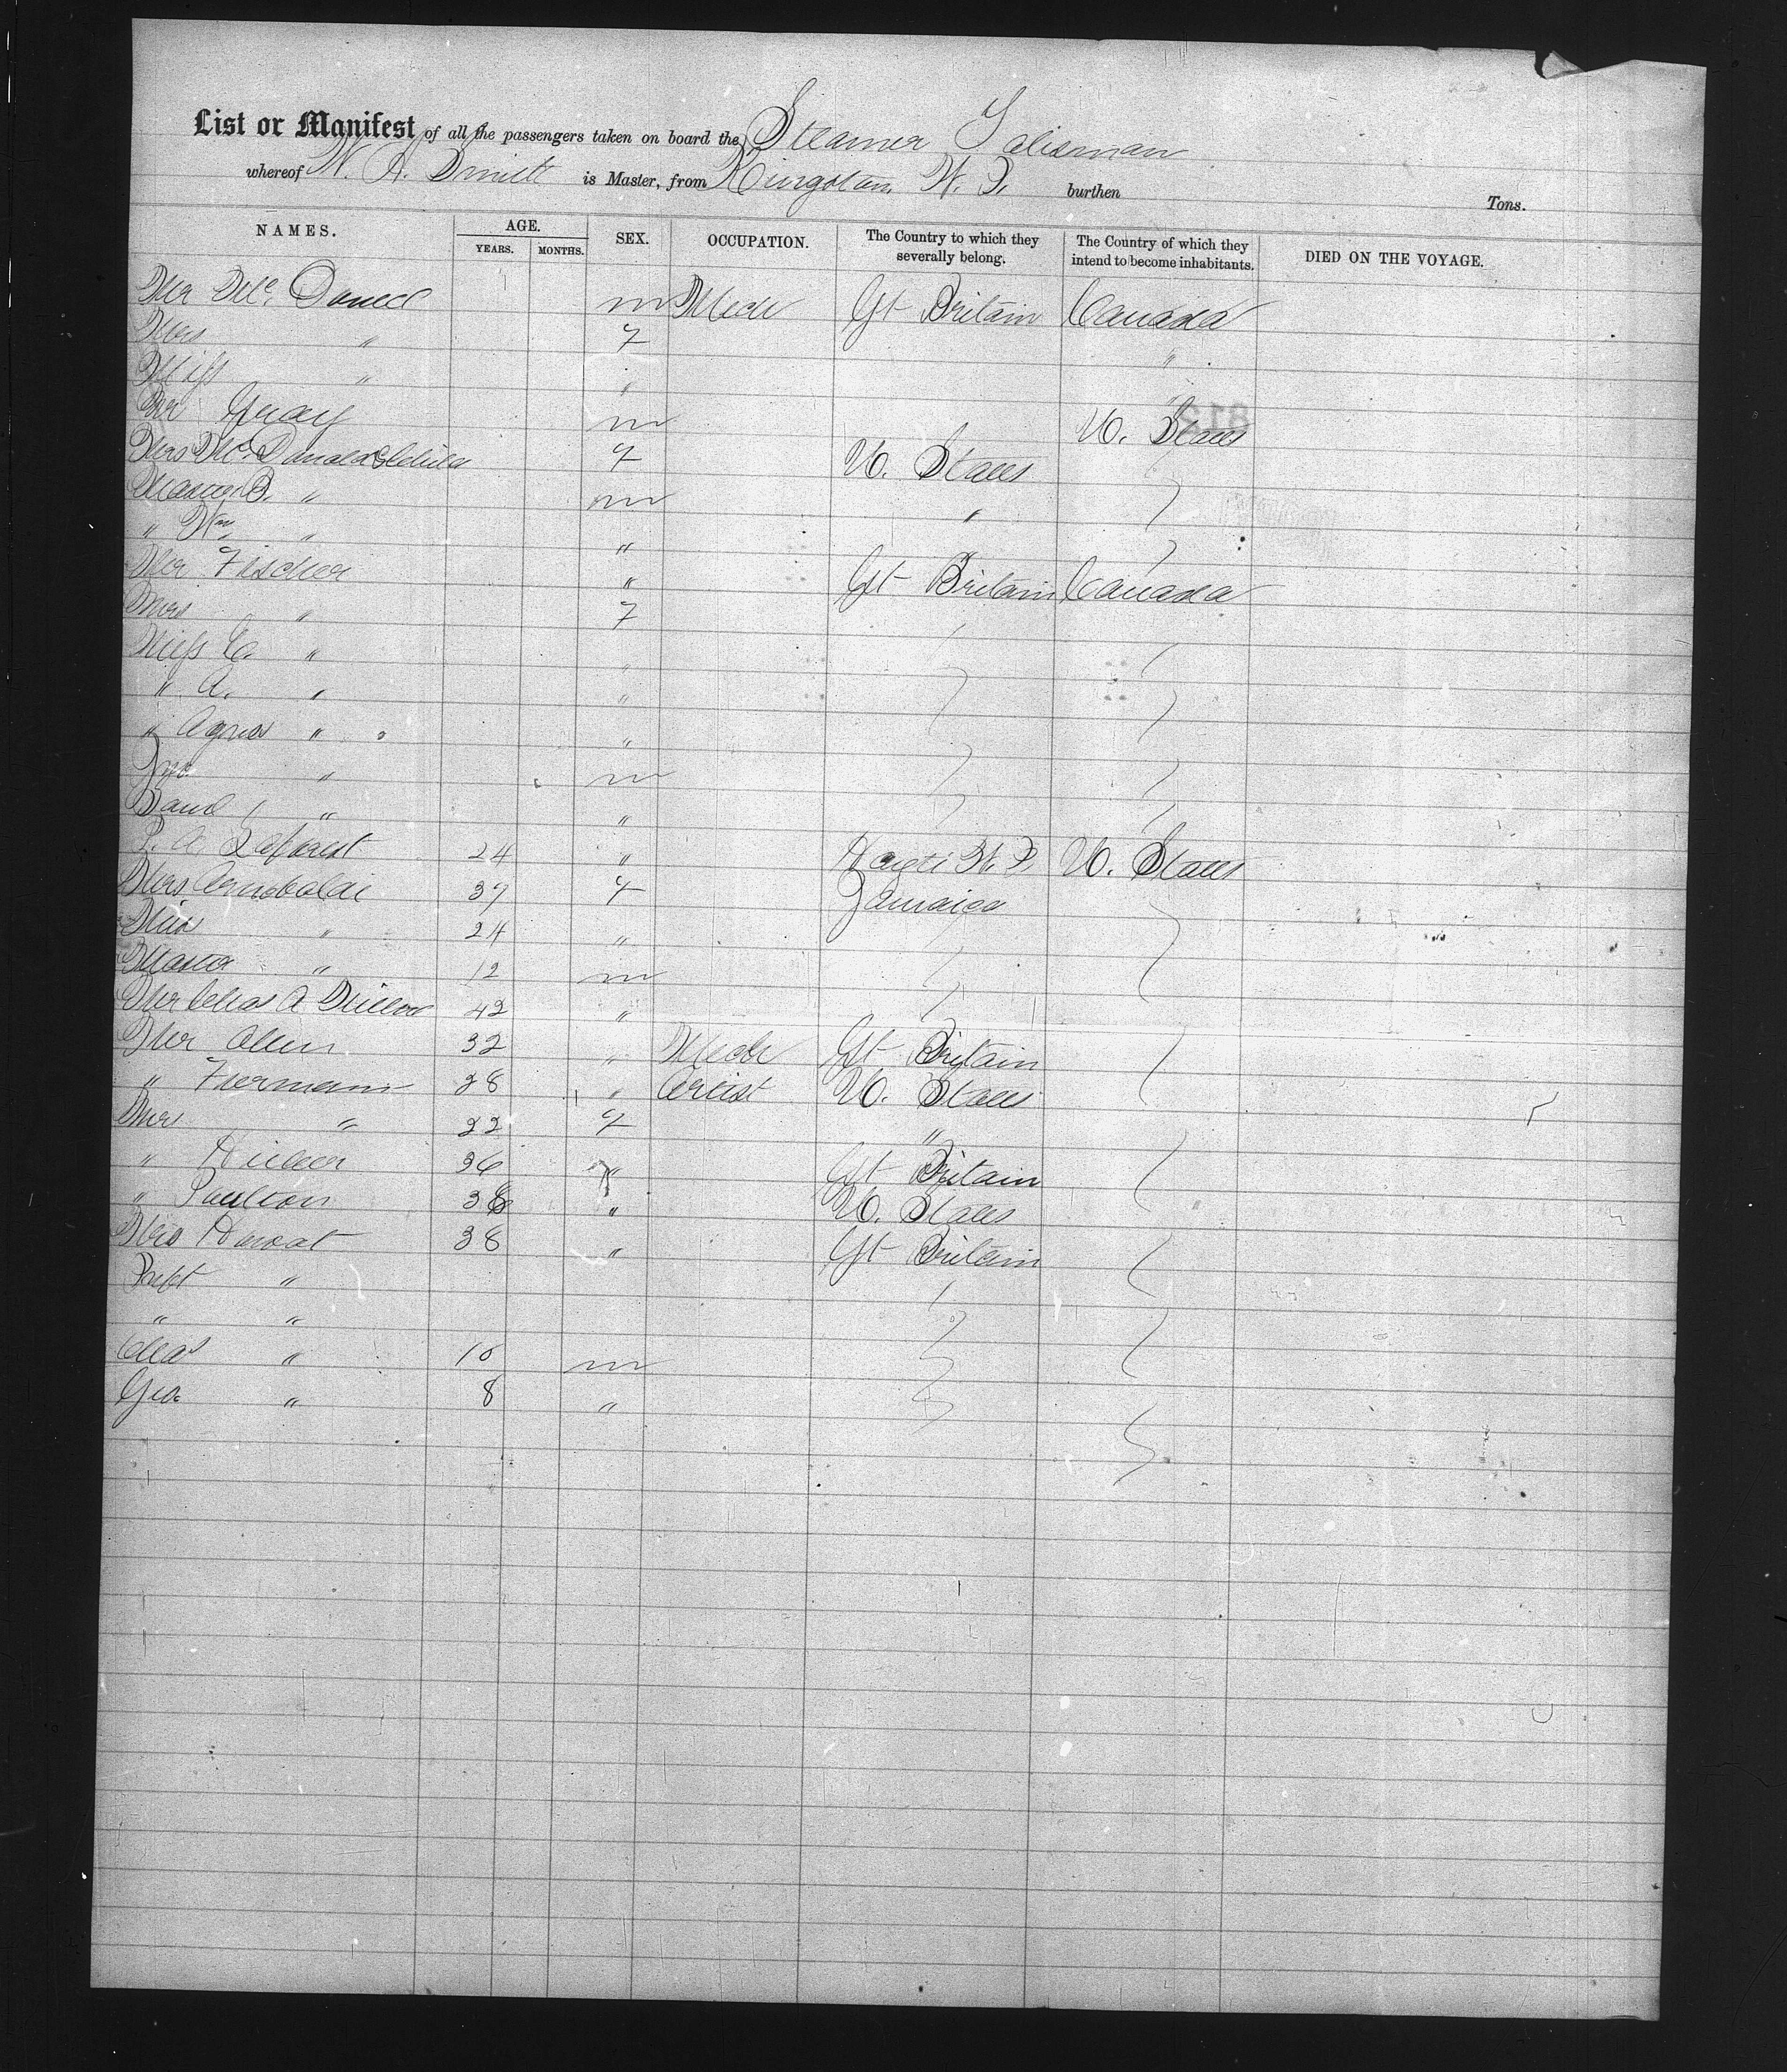 List or Manifest of all the passengers taken on board the Steamer Talisman
whereof W. A. Smith is Master, from Kingston W. I. burthen Tons.
NAMES. AGE. YEARS. MONTHS. SEX. OCCUPATION. The Country to which they severally belong. The Country of which they intend to become inhabitants. DIED ON THE VOYAGE.
Mr Mc. m Gt Britain Canada
Mrs " F "
Miss " "
Mr Gray m U. States
Mrs Mc Donald & child F U. States
Master B. " m "
" Wm " "
Mr Fischer " Gt Britain Canada
Mrs " F
Miss C. " "
" A. " "
" Agnes " "
Jno " m
David " "
P. A. Laforest 24 " Hayti W. I. U. States
Mrs 37 F Jamaica
Miss " 24 "
Master " 12 m
Mr Chas A 42 "
Mr Allen 32 " Gt Britain
" 28 " Artist U. States
Mrs " 22 F "
" 36 " Gt Britain
" 38 " U. States
Mrs 38 " Gt Britain
Inft "
" "
Chas " 10 m
Geo " 8 "